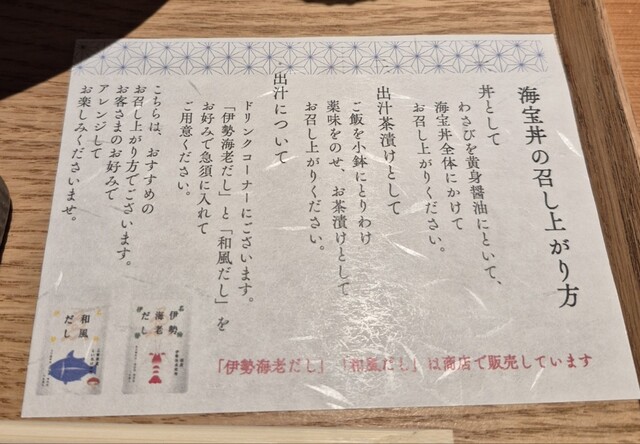 海宝丼の召し上がり方
丼として
わさびを黄身醤油にといて、
海宝丼全体にかけて
お召し上がりください。
出汁茶漬けとして
ご飯を小鉢にとりわけ
薬味をのせ、お茶漬けとして
お召し上がりください。
出汁について
ドリンクコーナーにございます。
「伊勢海老だし」と「和風だし」を
お好みで急須に入れて
ご用意ください。
こちらは、おすすめの
お召し上がり方でございます。
お客さまのお好みで
アレンジして
お楽しみくださいませ。
「伊勢海老だし」「和風だし」は商店で販売しています
伊勢
海老
だし
和風
だし